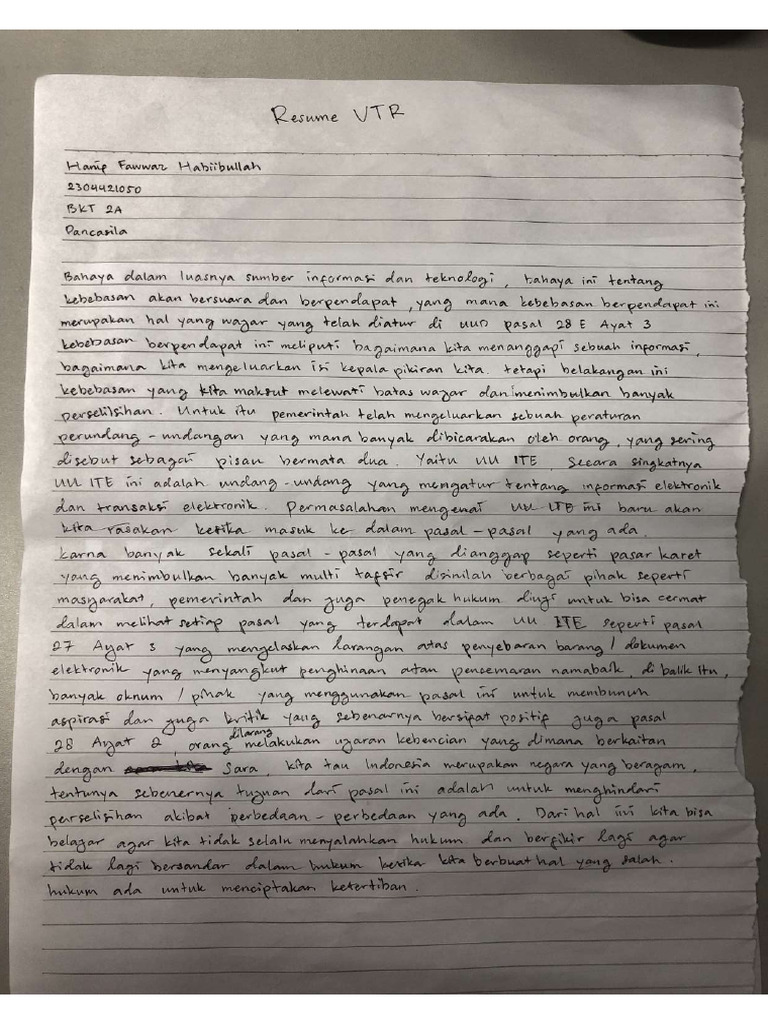 Resume VTR
Hanif Fawwaz Habiibullah
2304421050
BKT 2A
Pancasila
Bahaya dalam luasnya sumber informasi dan teknologi, bahaya ini tentang
kebebasan akan bersuara dan berpendapat, yang mana kebebasan berpendapat ini
merupakan hal yang wajar yang telah diatur di UUD pasal 28 E Ayat 3
kebebasan berpendapat ini meliputi bagaimana kita menanggapi sebuah informasi,
bagaimana kita mengeluarkan isi kepala pikiran kita. tetapi belakangan ini
kebebasan yang kita maksut melewati batas wajar dan menimbulkan banyak
perselisihan. Untuk itu pemerintah telah mengeluarkan sebuah peraturan
perundang-undangan yang mana banyak dibicarakan oleh orang, yang sering
disebut sebagai pisau bermata dua. Yaitu UU ITE, Secara singkatnya
UU ITE ini adalah undang-undang yang mengatur tentang informasi elektronik
dan transaksi elektronik. Permasalahan mengenai UU ITE ini baru akan
kita rasakan ketika masuk ke dalam pasal-pasal yang ada.
karna banyak sekali pasal-pasal yang dianggap seperti pasar karet
yang menimbulkan banyak multi tafsir disinilah berbagai pihak seperti
masyarakat, pemerintah dan juga penegak hukum diuji untuk bisa cermat
dalam melihat setiap pasal yang terdapat dalam UU ITE seperti pasal
27 Ayat 3 yang menjelaskan larangan atas penyebaran barang / dokumen
elektronik yang menyangkut penghinaan atau pencemaran namabaik, di balik itu,
banyak oknum / pihak yang menggunakan pasal ini untuk membunuh
aspirasi dan juga kritik yang sebenarnya bersifat positif juga pasal
28 Ayat 2, orang dilarang melakukan ujaran kebencian yang dimana berkaitan
dengan Sara, kita tau Indonesia merupakan negara yang beragam,
tentunya sebenernya tujuan dari pasal ini adalah untuk menghindari
perselisihan akibat perbedaan-perbedaan yang ada. Dari hal ini kita bisa
belajar agar kita tidak selalu menyalahkan hukum dan berfikir lagi agar
tidak lagi bersandar dalam hukum ketika kita berbuat hal yang salah.
hukum ada untuk menciptakan ketertiban.